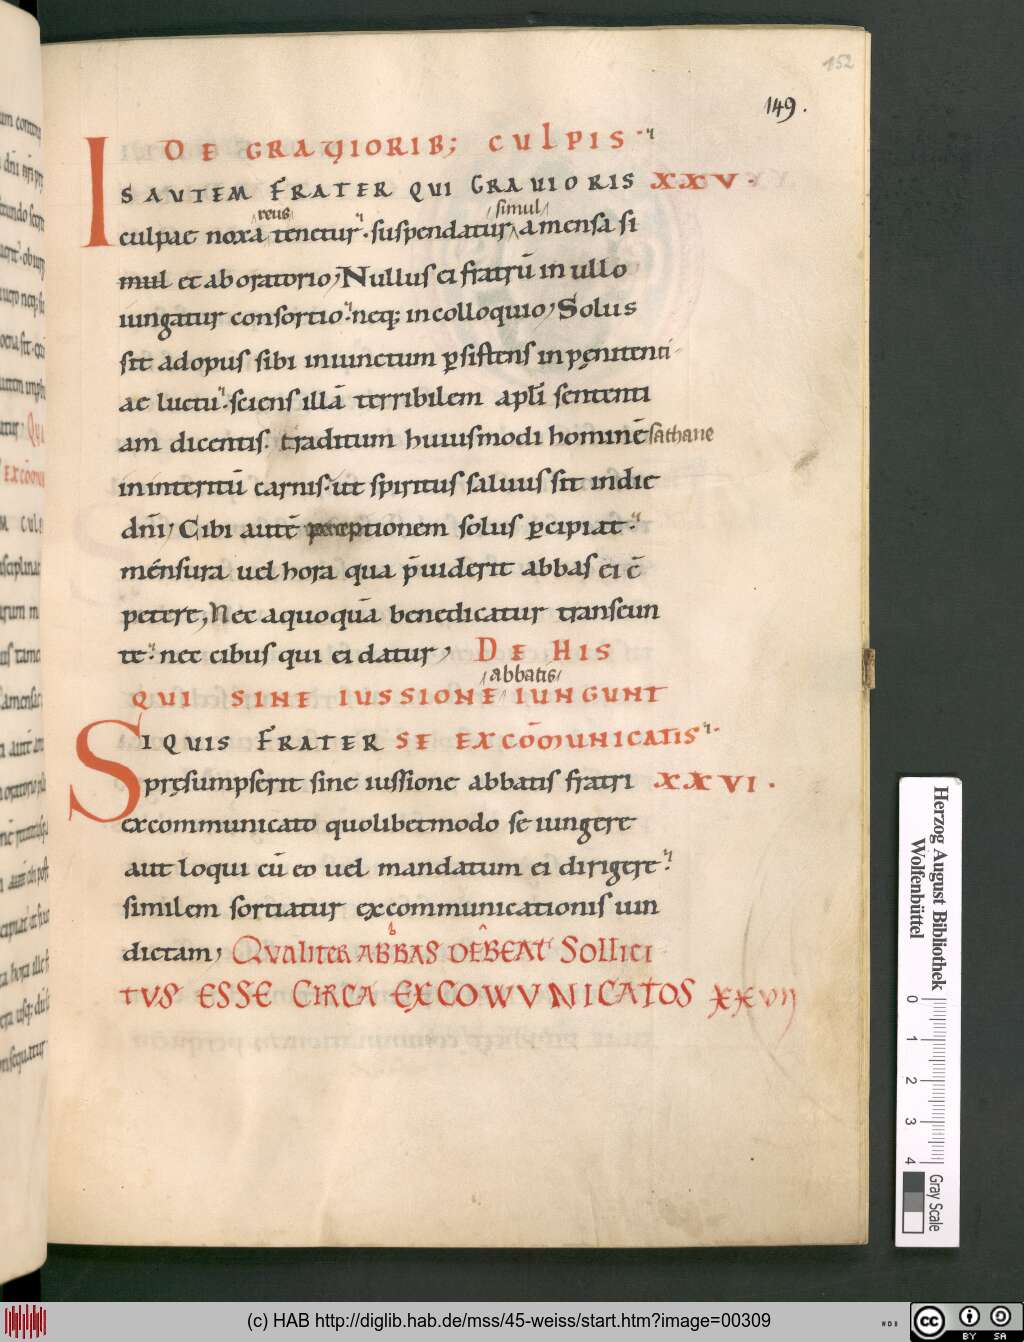 152
149.
DE GRAVIORIB; CULPIS
IS AUTEM FRATER QUI GRAVIORIS XXV.
reus simul
culpae noxa tenetur. suspendatur a mensa si
mul et ab oratorio; Nullus ei fratrū in ullo
iungatur consortio. neq; in colloquio; Solus
sit ad opus sibi iniunctum ꝑsistens in pęnitenti
ae luctu. sciens illā terribilem apłi sententi
am dicentis. traditum huiusmodi hominē sathane
in interitū carnis. ut spiritus saluus sit in die
dn̄i; Cibi autē perceptionem solus ꝑcipiat.
mensura uel hora qua p̄uiderit abbas ei cō
petere, Nec a quoquā benedicatur transeun
te. nec cibus qui ei datur; DE HIS
abbatis
QUI SINE IUSSIONE IUNGUNT
SIQUIS FRATER SE EXCŌMUNICATIS
pręsumpserit sine iussione abbatis fratri XXVI.
excommunicato quolibet modo se iungere
aut loqui cū eo uel mandatum ei dirigere.
similem sortiatur excommunicationis uin
dictam; QVALITER ABBAS DEBEAT SOLLICI
b
TVS ESSE CIRCA EXCOMVNICATOS XXVII
um com
Qui
EXCŌM
M CULP
isciplinae
arum m
us tame
a mensae
Herzog August Bibliothek
Wolfenbüttel
0 1 2 3 4
Gray Scale
(c) HAB http://diglib.hab.de/mss/45-weiss/start.htm?image=00309
WDB
cc BY SA